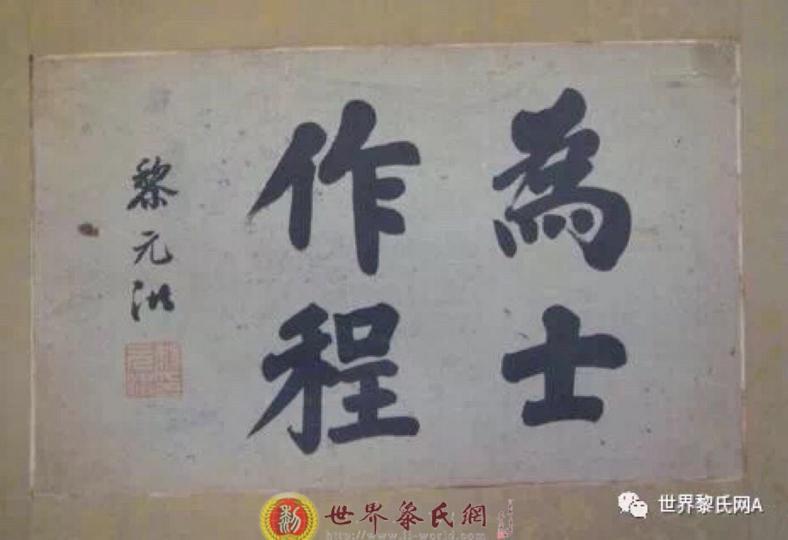 為士
作程
黎元洪
世界黎氏網
http://www.li-world.com
世界黎氏网A